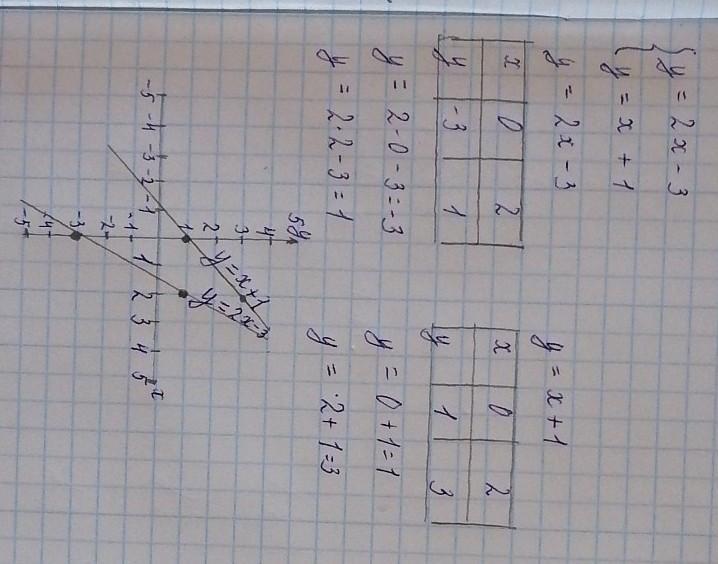 { y = 2x - 3
{ y = x + 1
y = 2x - 3
x 0 2
y -3 1
y = 2·0 - 3 = -3
y = 2·2 - 3 = 1
y = x + 1
x 0 2
y 1 3
y = 0 + 1 = 1
y = 2 + 1 = 3
5 y
4
3
2
1
-1
-2
-3
-4
-5
-5 -4 -3 -2 -1 1 2 3 4 5 x
y = x + 1
y = 2x - 3